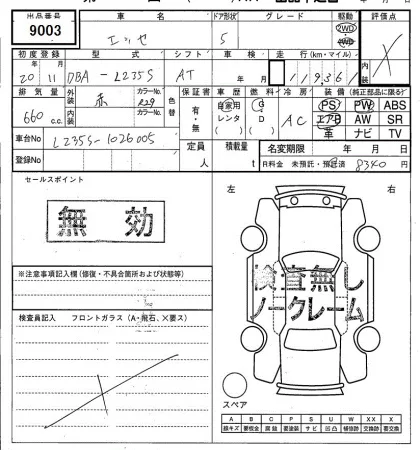 出品番号 車名 ドア形状 グレード 駆動 評価点
9003 エッセ 5 2WD 4WD X
初度登録 型式 シフト 車検 走行(km・マイル) 内装
20年11月 DBA-L235S AT 年 月 119361
排気量 外装 赤 カラーNo. R29 色替 保証書 車歴 燃料 冷房 装備(純正部品に限る)
660 c.c. 内装 カラーNo. 有・無 自家用 レンタ ( ) G D ( ) AC PS PW ABS
エアB AW SR
革 ナビ TV
車台No L235S-1026005
定員 人 積載量 t 名変期限 年 月 日
登録No R料金 未預託・預託済 8340 円
セールスポイント
無効
左 右
検査無し
ノークレーム
※注意事項記入欄(修復・不具合箇所および状態等)
検査員記入 フロントガラス(A・飛石、X要ス)
スペア
A B C P S U W X XX X
線キズ 要板金 腐蝕 要塗装 サビ 凹凸 補修跡 交換跡 要交換